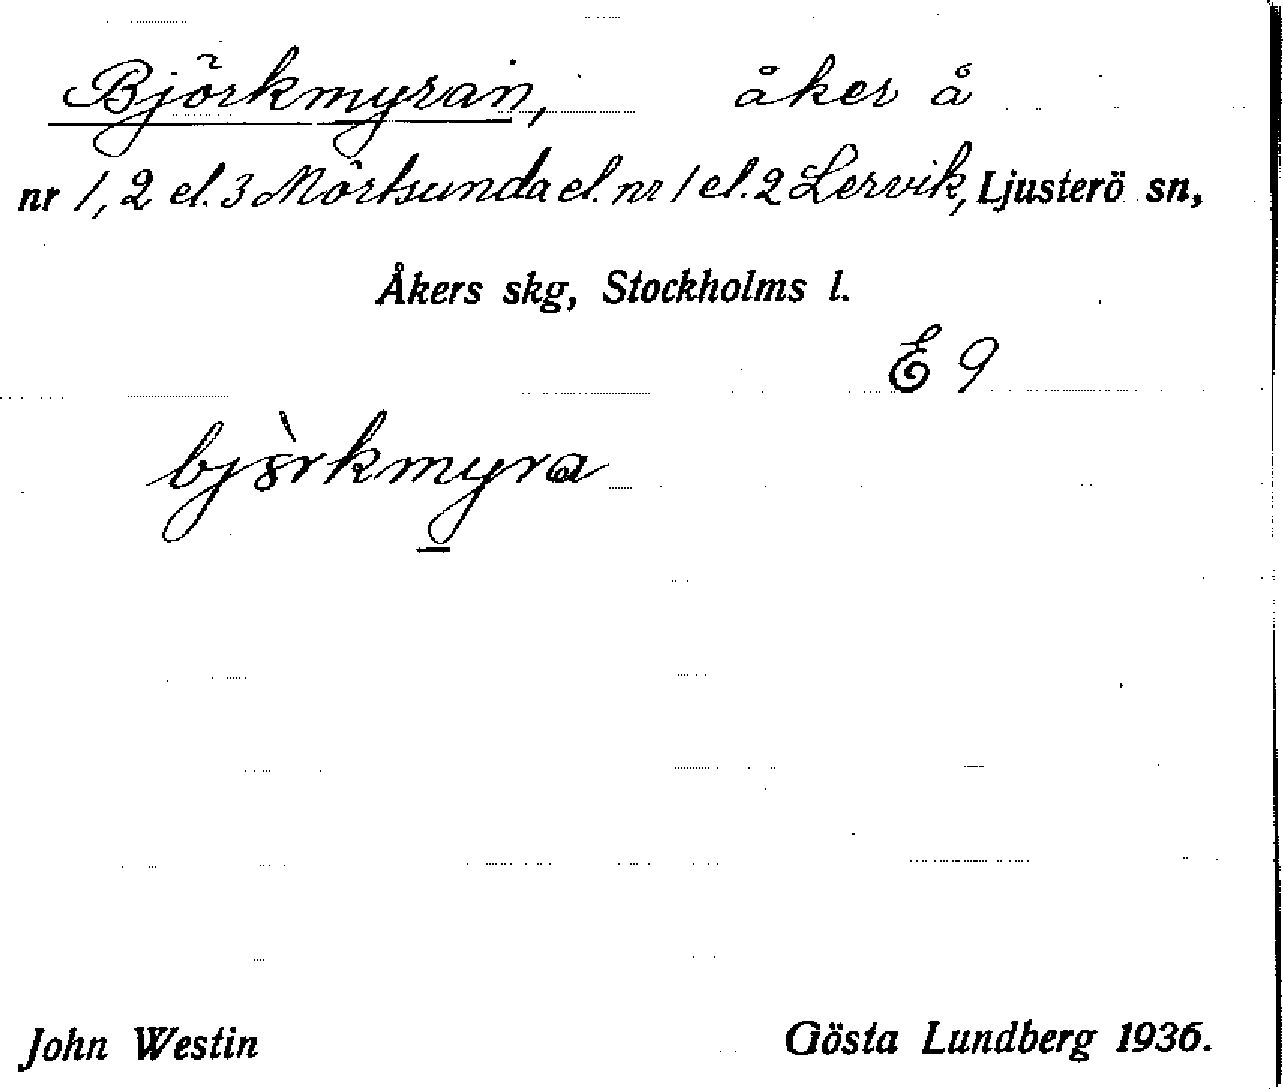 Björkmyran, åker å
nr 1, 2 el. 3 Mörtsunda el. nr 1 el. 2 Lervik, Ljusterö sn,
Åkers skg, Stockholms l.
E 9
bjòrkmyra
John Westin Gösta Lundberg 1936.